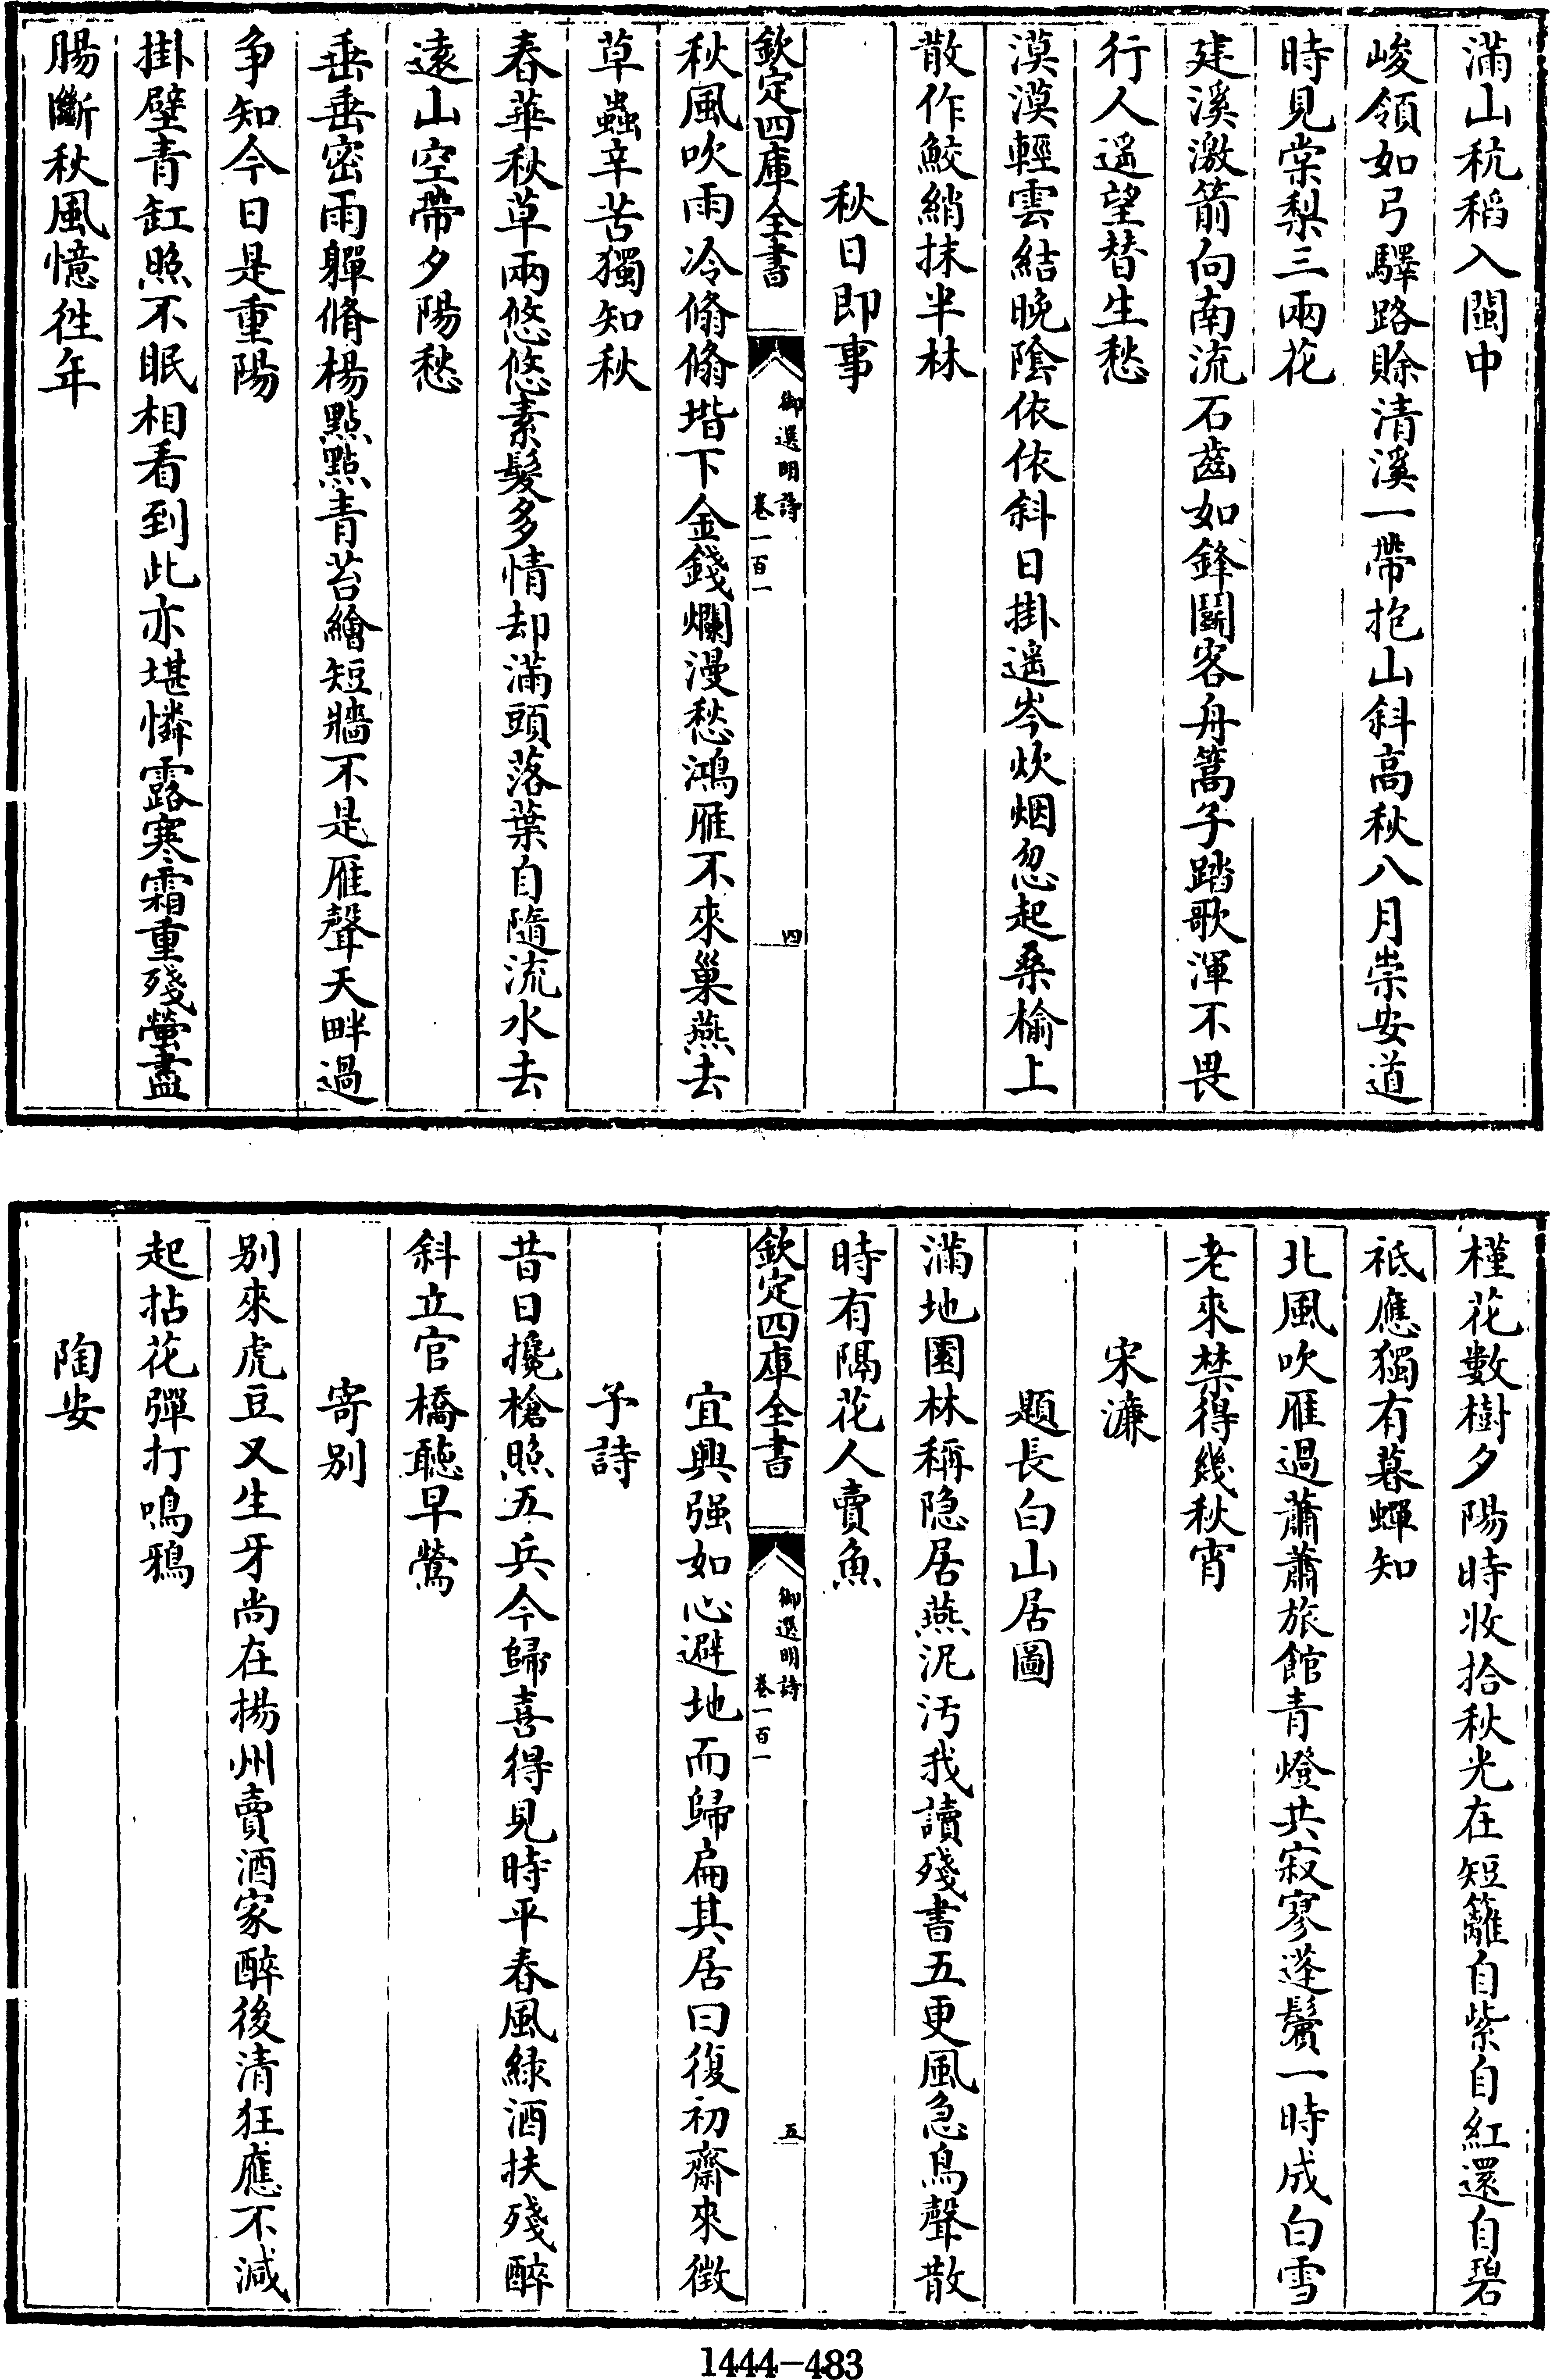 滿山秔稻入閩中
峻領如弓驛路賒清溪一帶抱山斜高秋八月崇安道
時見棠梨三兩花
建溪激箭向南流石齒如鋒鬬客舟篙子踏歌渾不畏
行人遥望替生愁
漠漠輕雲結晚陰依依斜日掛遥岑炊烟忽起桑榆上
散作鮫綃抹半林
秋日即事
欽定四庫全書
御選明詩
卷一百一
四
秋風吹雨冷翛翛堦下金錢爛漫愁鴻雁不來巢燕去
草蟲辛苦獨知秋
春華秋草兩悠悠素髮多情却滿頭落葉自隨流水去
遠山空帶夕陽愁
垂垂密雨嚲脩楊點點青苔繪短牆不是雁聲天畔過
争知今日是重陽
掛壁青缸照不眠相看到此亦堪憐露寒霜重殘螢盡
腸斷秋風憶徃年
槿花數樹夕陽時收拾秋光在短籬自紫自紅還自碧
祗應獨有暮蟬知
北風吹雁過蕭蕭旅館青燈共寂寥蓬鬢一時成白雪
老來禁得幾秋宵
宋濂
題長白山居圖
滿地園林稱隐居燕泥汚我讀殘書五更風急鳥聲散
時有隔花人賣魚
欽定四庫全書
御選明詩
卷一百一
五
宜興强如心避地而歸扁其居曰復初齋來徵
予詩
昔日攙槍照五兵今歸喜得見時平春風緑酒扶殘醉
斜立官橋聴早鶯
寄别
别來虎豆又生牙尚在揚州賣酒家醉後清狂應不減
起拈花彈打鳴鴉
陶安
1444-483